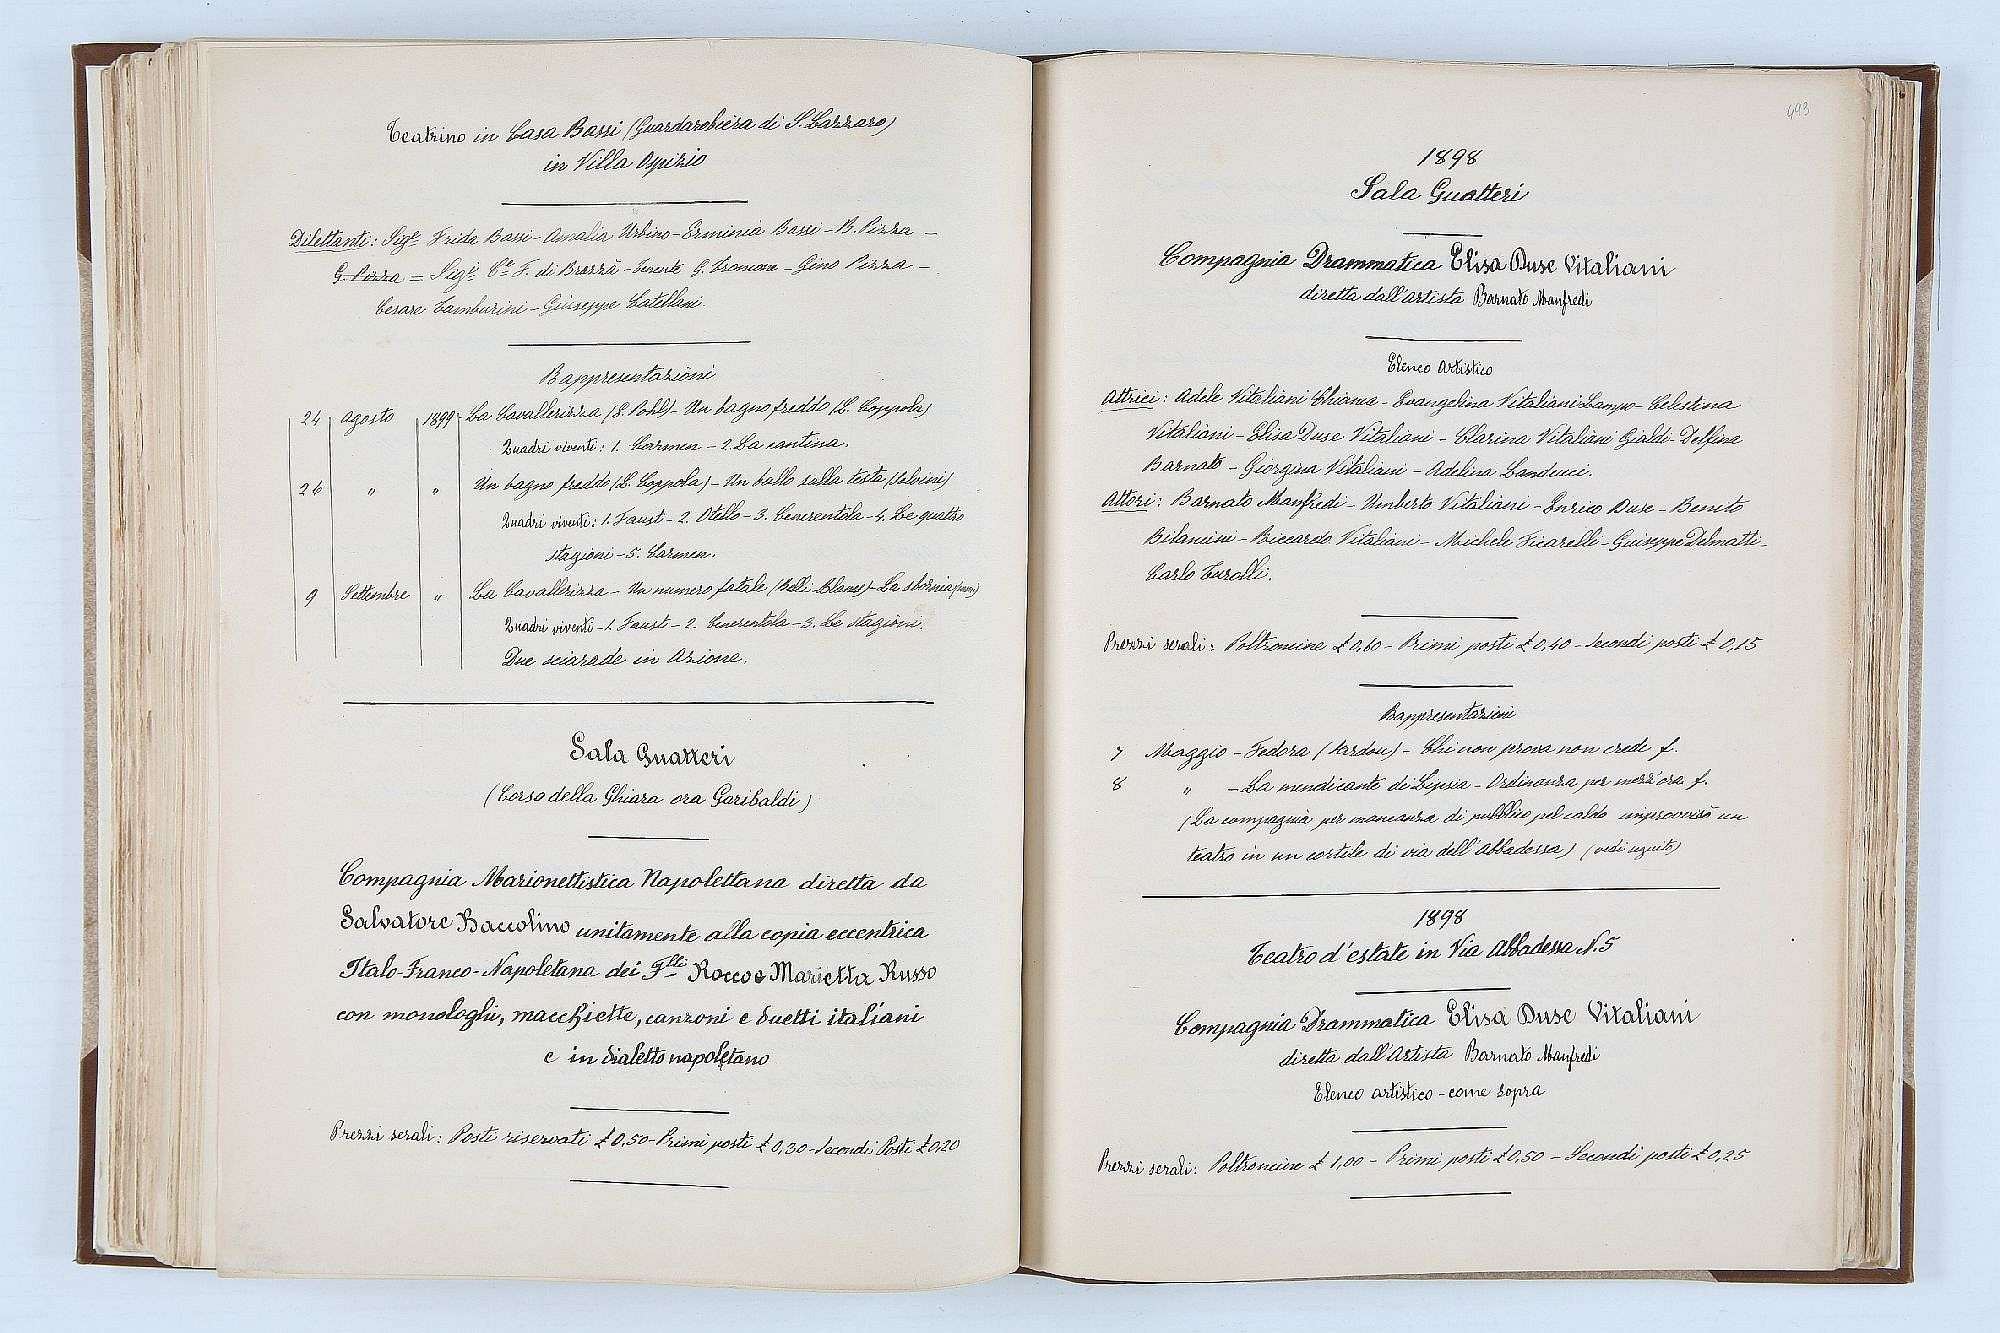 Teatrino in Casa Bassi (Guardarobiera di S. Lazzaro)
in Villa Ospizio
Dilettanti: Sig.e Frida Bassi - Amalia Urbino - Erminia Bassi - B. Pizza -
G. Pizza = Sig.i C.te F. di Brazzà - Tenente G. - Gino Pizza -
Cesare Tamburini - Giuseppe Catellani.
Rappresentazioni
24 Agosto 1899 La Cavallerizza (E. Pohl) - Un bagno freddo (L. Coppola)
Quadri viventi: 1. Carmen - 2. La cantina.
26 " " Un bagno freddo (L. Coppola) - Un ballo sulla testa (Salvini)
Quadri viventi: 1. Faust - 2. Otello - 3. Cenerentola - 4. Le quattro
stagioni - 5. Carmen.
9 Settembre " La Cavallerizza - Un numero fatale (Belli Blanes) - La sbornia
Quadri viventi - 1. Faust - 2. Cenerentola - 3. Le stagioni.
Due sciarade in azione.
Sala Guatteri
(Corso della Ghiara ora Garibaldi)
Compagnia Marionettistica Napolettana diretta da
Salvatore Baccolino unitamente alla copia eccentrica
Italo-Franco-Napoletana dei F.lli Rocco e Marietta Russo
con monologhi, macchiette, canzoni e duetti italiani
e in dialetto napoletano
Prezzi serali: Posti riservati £ 0,50 - Primi posti £ 0,30 - Secondi Posti £ 0,20
493
1898
Sala Guatteri
Compagnia Drammatica Elisa Duse Vitaliani
diretta dall'artista Barnato Manfredi
Elenco Artistico
Attrici: Adele Vitaliani Chiama - Evangelina Vitaliani Lampo - Celestina
Vitaliani - Elisa Duse Vitaliani - Clarina Vitaliani Gialdi - Delfina
Barnato - Giorgina Vitaliani - Adelina Landucci.
Attori: Barnato Manfredi - Umberto Vitaliani - Enrico Duse - Benito
Bilancini - Riccardo Vitaliani - Michele Ficarelli - Giuseppe Delmatti -
Carlo Turolli.
Prezzi serali: Poltroncine £ 0,60 - Primi posti £ 0,40 - Secondi posti £ 0,15
Rappresentazioni
7 Maggio - Fedora (Sardou) - Chi non prova non crede f.
8 " - La mendicante di Lipsia - Ordinanza per mezz'ora f.
(La compagnia per mancanza di pubblico pel caldo improvvisò un
teatro in un cortile di via dell'Abbadessa) (vedi seguito)
1898
Teatro d'estate in Via Abbadessa N. 5
Compagnia Drammatica Elisa Duse Vitaliani
diretta dall'Artista Barnato Manfredi
Elenco artistico - come sopra
Prezzi serali: Poltroncine £ 1,00 - Primi posti £ 0,50 - Secondi posti £ 0,25